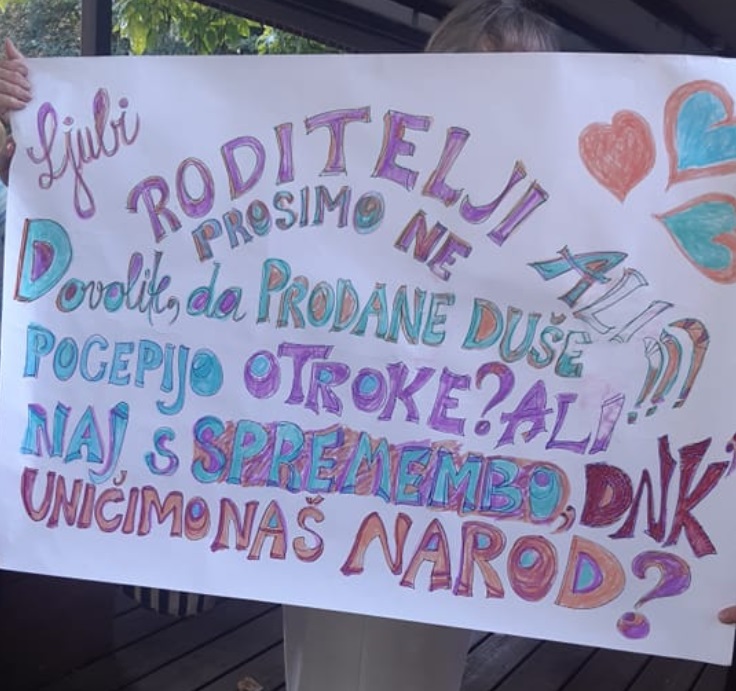 Ljubi
RODITELJI
PROSIMO NE
Dovolite, da PRODANE DUŠE
ALI???
POCEPIJO OTROKE? ALI
NAJ S SPREMEMBO, DNK'
UNIČIMO NAŠ NAROD?